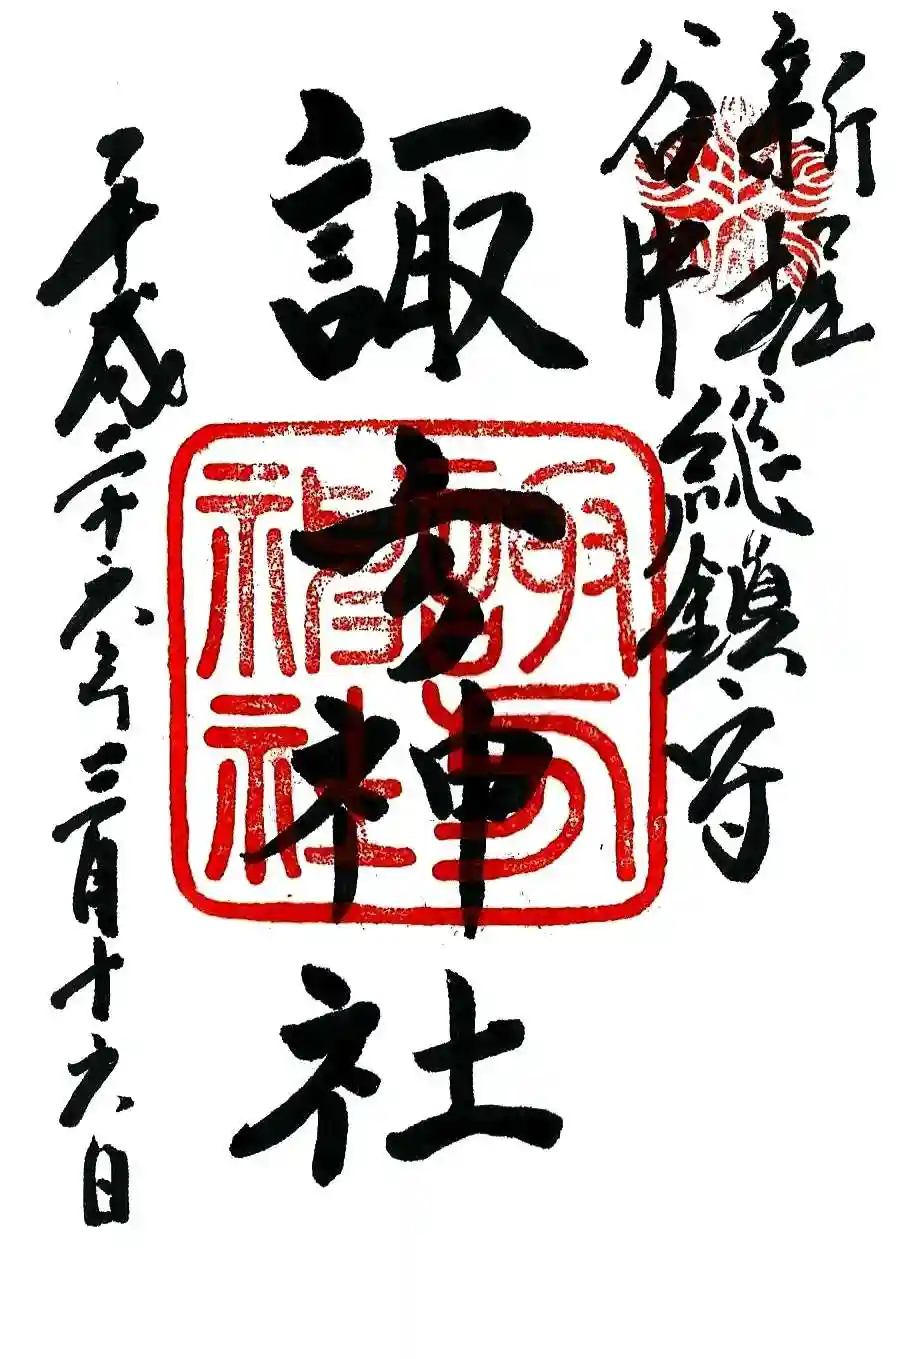 新堀
谷中
総鎮守
諏方神社
諏方神社
平成二十六年三月十六日